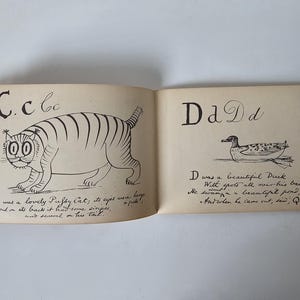 C. c C c
was a lovely Pussy Cat; its eyes were large
and on its back it had some stripes,
and several on his tail.
D d D d
D was a beautiful Duck
With spots all over his
He swam in a beautiful pond
And when he came out, said, Q